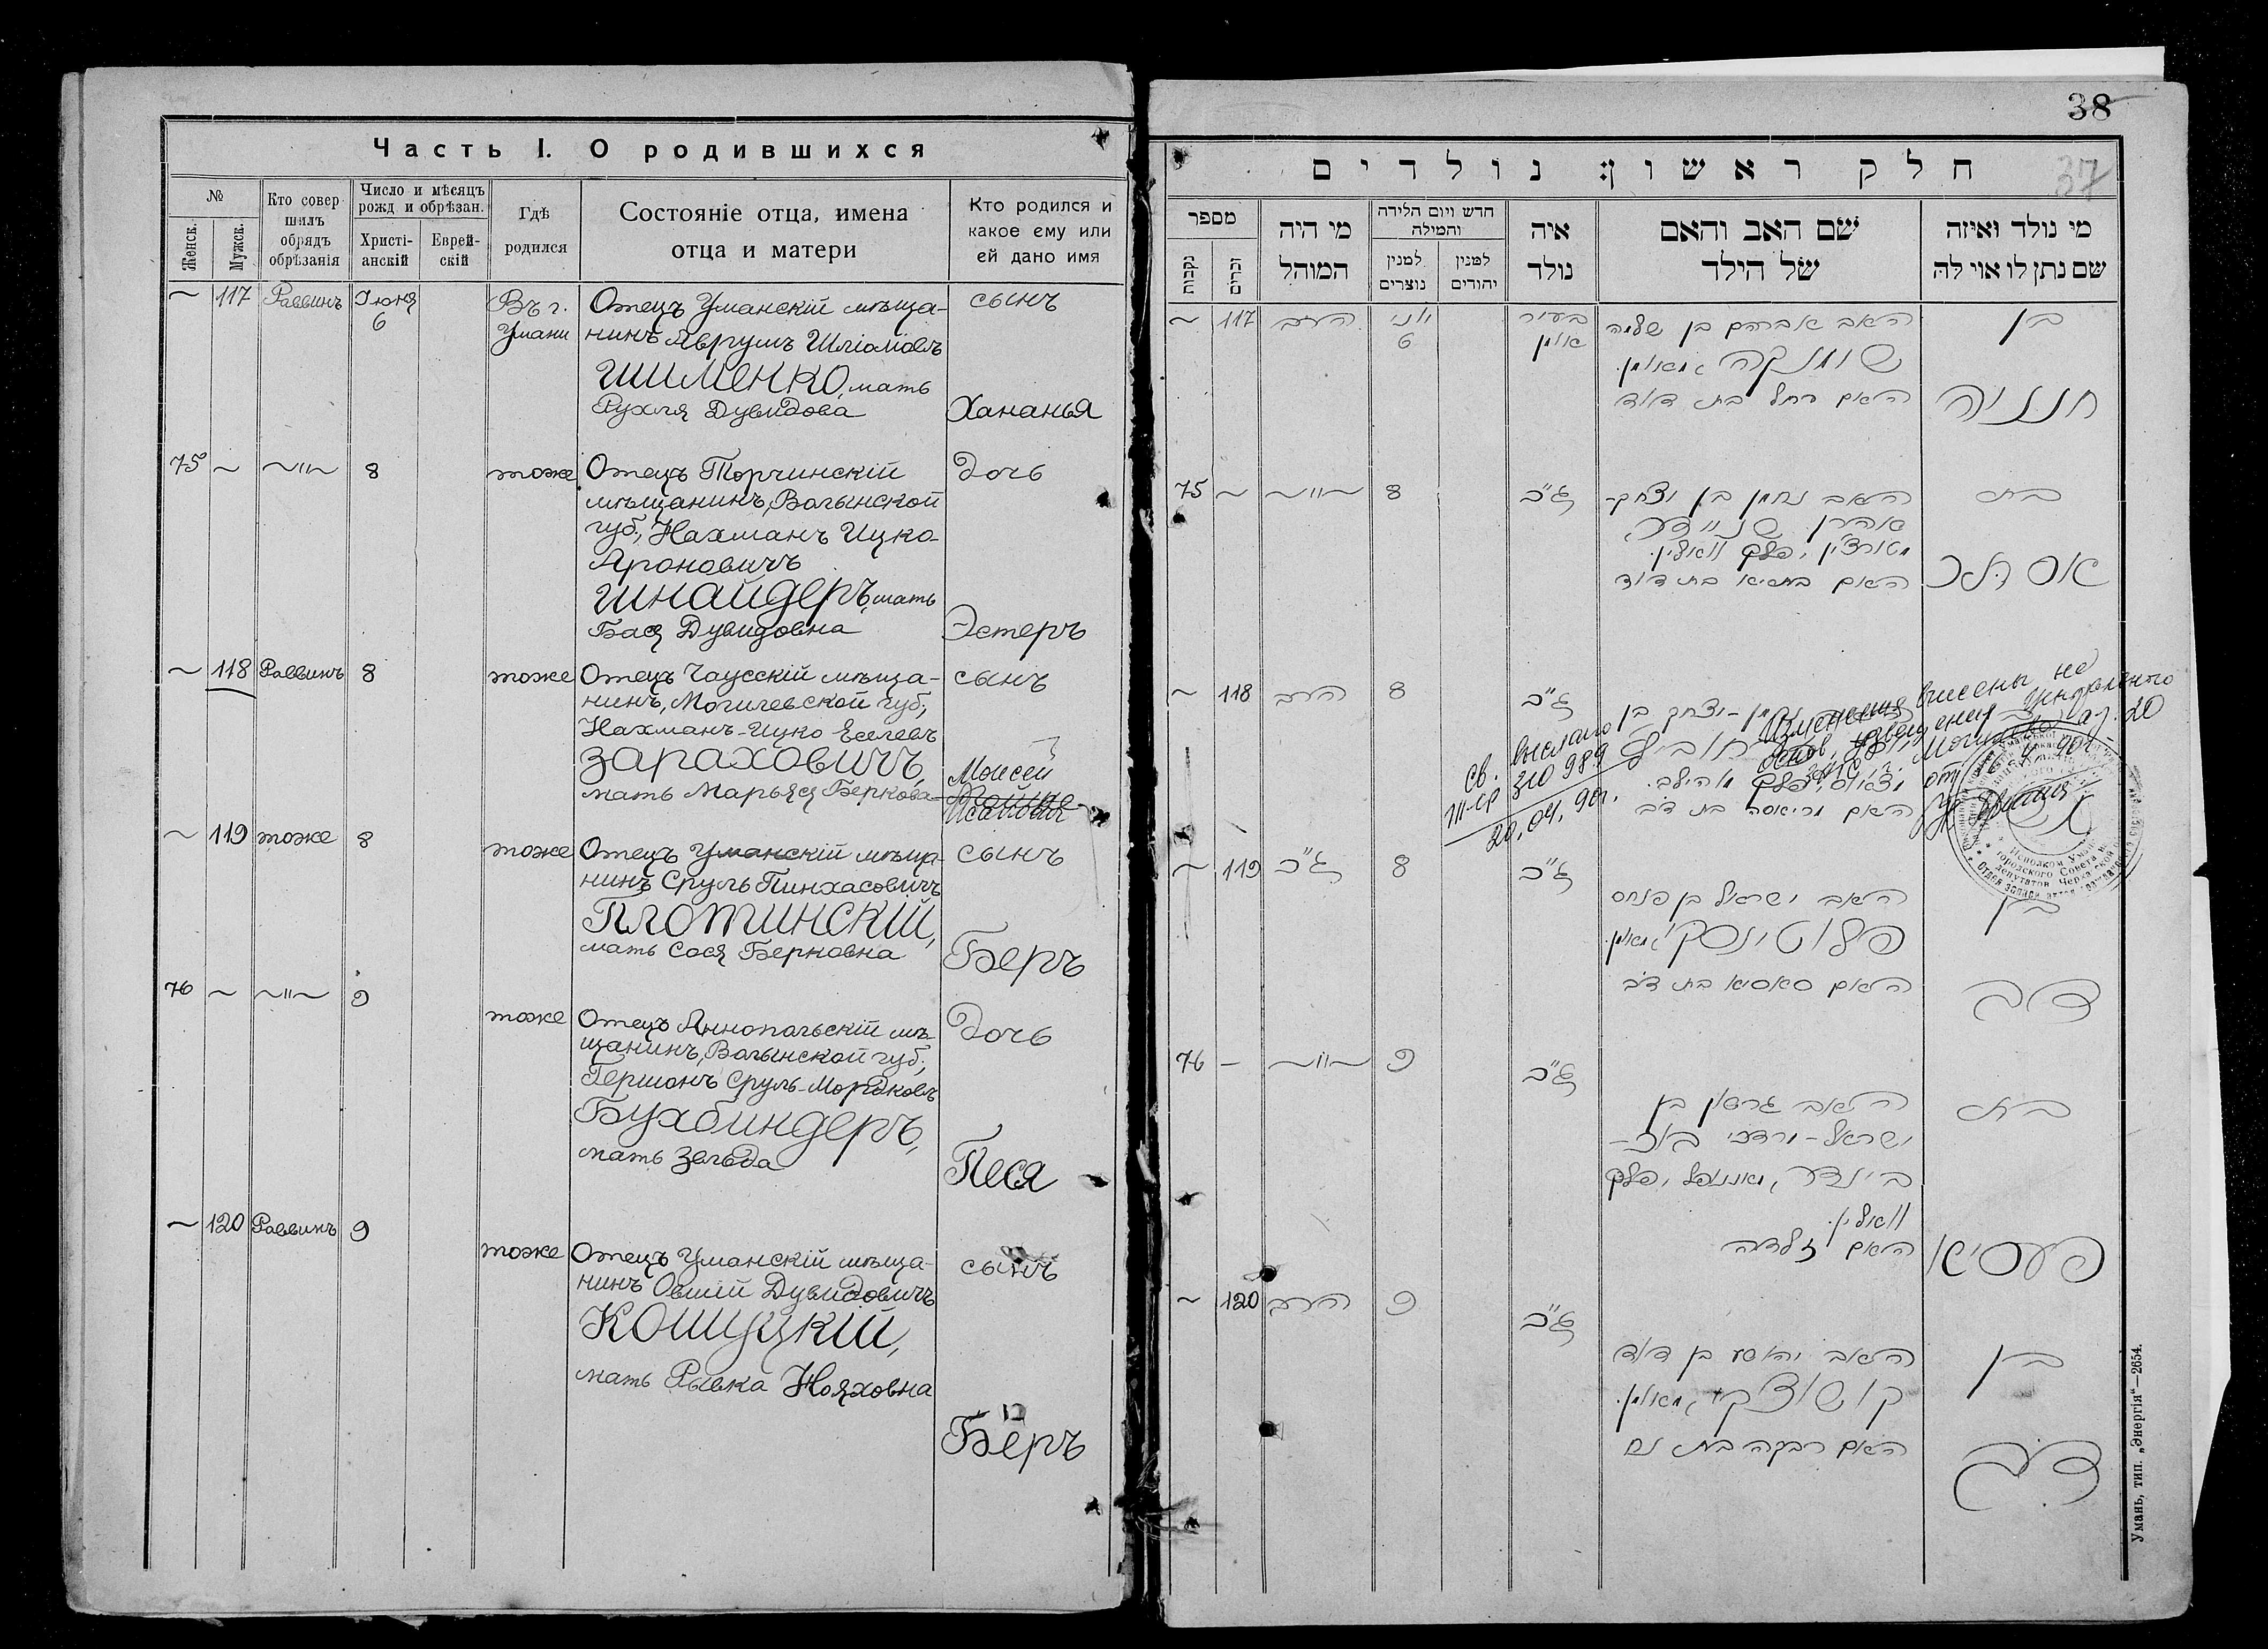 Часть I. О родившихся
№
Женск.
Мужск.
Кто совер
шилъ
обрядъ
обрѣзанія
Число и мѣсяцъ
рожд и обрѣзан.
Христі-
анскій
Еврей-
скій
Гдѣ
родился
Состояніе отца, имена
отца и матери
Кто родился и
какое ему или
ей дано имя
~ 117 Раввинъ Іюня
6
Въ г.
Умани
Отецъ Уманскій мѣща-
нинъ Аврумъ Шліомовъ
Шименко, мать
Рухля Дувидова
сынъ
Хананья
75 ~ ~"~ 8 тоже
Отецъ Торчинскій
мѣщанинъ, Волынской
губ., Нахманъ Ицко-
Ароновичъ
Шнайдеръ, мать
Бася Дувидовна
Дочь
Эстеръ
~ 118 Раввинъ 8 тоже
Отецъ Чаусскій мѣща-
нинъ, Могилевской губ.,
Нахманъ-Ицко Еселевъ
Зараховичъ,
мать Марьяся Беркова
сынъ
Моисей
~ 119 тоже 8 тоже
Отецъ Уманскій мѣща-
нинъ Сруль Пинхасовичъ
Плотинскій,
мать Сося Берковна
сынъ
Беръ
76 ~ ~"~ 9 тоже
Отецъ Аннопольскій мѣ-
щанинъ, Волынской губ.,
Гершонъ Сруль-Мордковъ
Бухбиндеръ,
мать Зельда
Дочь
Песя
~ 120 Раввинъ 9 тоже
Отецъ Уманскій мѣща-
нинъ Овшій Дувидовичъ
Кошуцкій,
мать Рывка Нояховна
сынъ
Беръ
38
37
חלק ראשון: נולדים
מספר
נקבות
זכרים
מי היה
המוהל
חדש ויום הלידה
והמילה
למנין
נוצרים
למנין
יהודים
איה
נולד
שם האב והאם
של הילד
מי נולד ואיזה
שם נתן לו אוי לה
~ 117 הרב יוני
6
בעיר
אומן
האב אברהם בן שלמה
שימנקה, מאומן.
האם רחל בת דוד
בן
חנניה
75 ~ ~"~ 8 ג"כ
האב נחמן בן יצחק-
אהרן שניידער
מטורצין, פלך וואלין.
האם בתיא בת דוד
בת
אסתר
~ 118 הרב 8 ג"כ
св. выслано
III-СР 310989
20.04.90г.
внесены не
~ 119 ג"כ 8 ג"כ
האב ישראל בן פנחס
פלוטינסקי, מאומן.
האם סאסיא בת דב
בן
דב
76 – ~"~ 9 ג"כ
האב גרשון בן
ישראל-מרדכי בוכ-
בינדער, מאננופל, פלך
וואלין.
האם זלדה
בת
פעסיא
~ 120 הרב 9 ג"כ
האב יהושע בן דוד
קושוצקי, מאומן.
האם רבקה בת נח
בן
דב
Умань, тип. „Энергія“—2654.